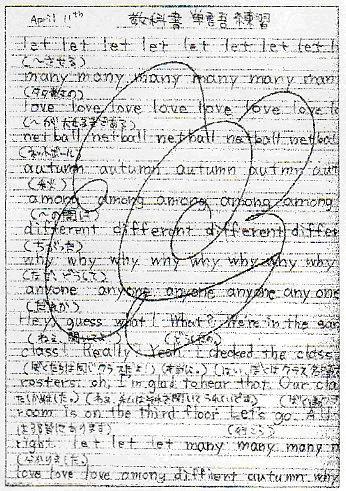 April 11th 教科書 単語練習
let let let let let let let let l
(〜させる)
many many many many many man
(多数の)
love love love love love love lo
(〜が大好きである)
netball netball netball netball netbal
(ネットボール)
autumn autumn autumn autmn aut
(秋)
among among among among among
(〜の間に)
different different different differ
(ちがった)
why why why why why why why why
(なぜ、どうして)
anyone anyone anyone anyone any one
(だれか)
Hey, guess what! What? We're in the sam
(ねえ、聞いてよ) (どうしたの)
class! Really? Yeah. I checked the class
rosters. oh, I'm glad to hear that. Our cla
room is on the third floor. Let's go. All
(行こう)
right. let let let many many many m
(わかりました)
love love love among diffilent autumn why